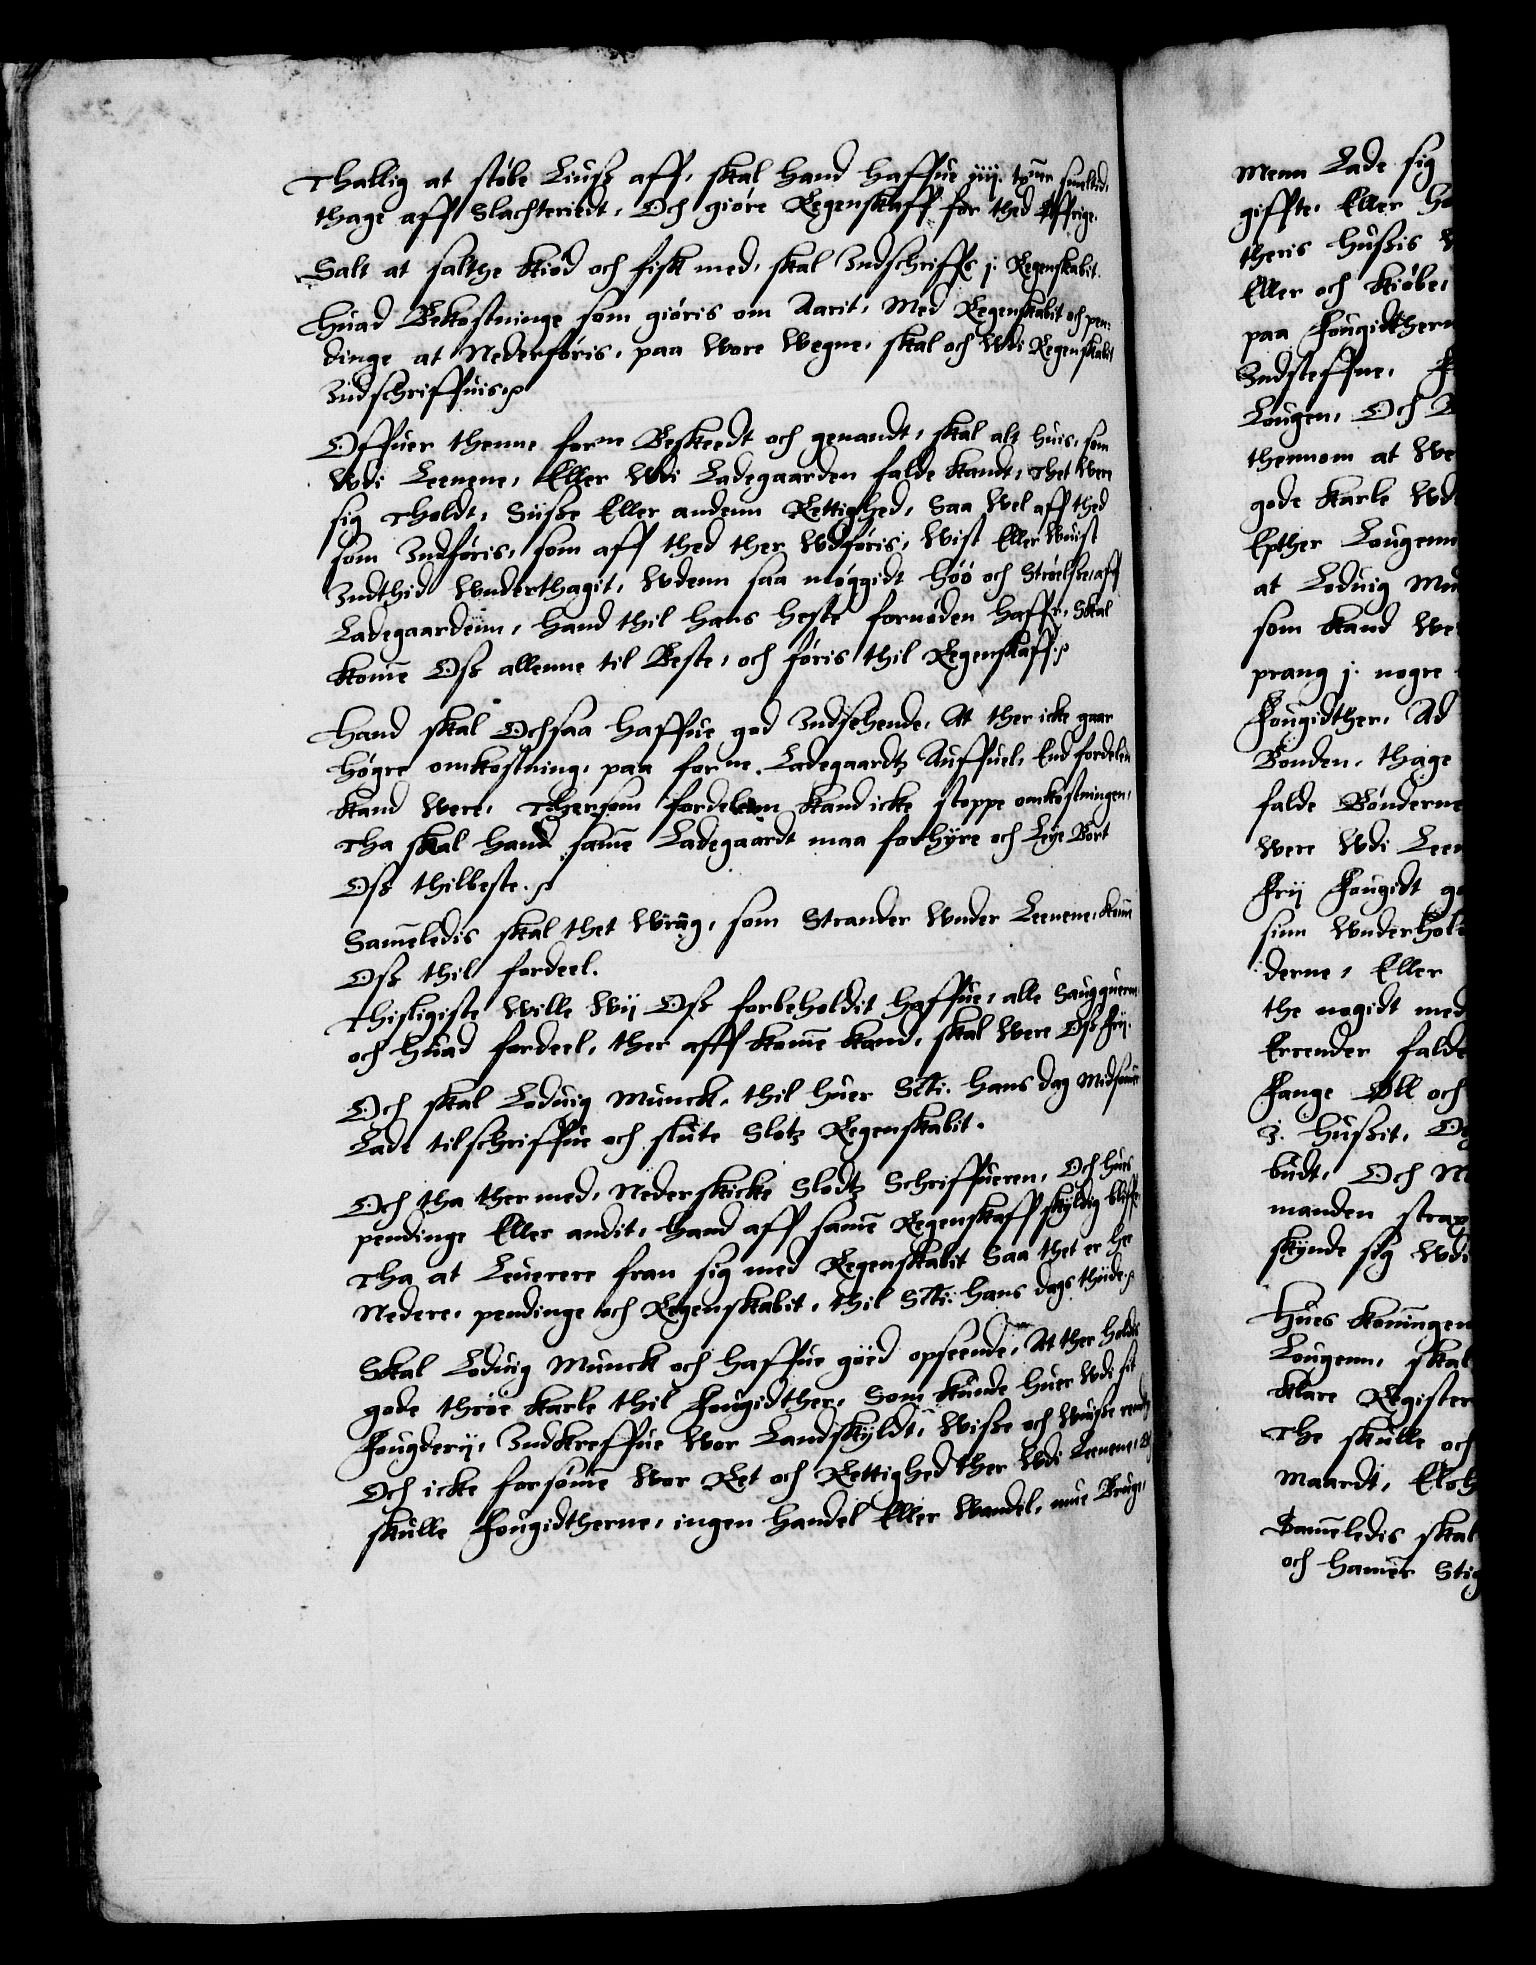 Thallig at støbe Liuss aff, skal hand haffue iiij. tønr smeltid,
thage aff Slachteriedt, Och giøre Regenskaff for thed Øffrige.
Salt at salthe kiød och fisk med, skal Indschriffs j. Regenskabit.
Huad Bekostninge som giøris om Aarit, Med Regenskabit och pen:
dinge at Nederføris, paa wore wegne, skal och wdi Regenskabit
Indschriffuis.
Offuer thenne forne Beskeedt och genandt, skal alt huis, som
wdi Leenene, Eller wdi Ladegaarden falde kandt, Thet were
sig Tholdt, Siisse Eller andenn Rettighed, Saa wel aff thed
som Indføris, som aff thed ther wdføris, wist Eller wuist
Indthid wnderthagit, wdenn saa møggidt höö och Strøelse, aff
Ladegaardenn, hand thil hans heste fornøden haffr, Skal
komē Oss allenne til Beste, och føris thil Regenskaff.
Hand skal Ochsaa haffue god Indsehende, At ther icke gaar
høgre omkostning, paa forne. Ladegaardtz Auffuel, End fordelen
kand were, Thersom fordelenn kand icke stoppe omkostningen,
Tha skal hand samē Ladegaardt maa forhyre och Leye Bort
Oss thilbeste.
Samēledis skal thet wrag, som Strander wnder Leenene, komē
Oss thil fordeel.
Thisligiste wille wij Oss forbeholdit haffue, alle Saugquerne
och huad fordeel, ther aff komē kand, skal were Oss frij.
Och skal Loduig Munck, thil huer Scti. Hans dag Midsomer
Lade tilschriffue och slute Slotz Regenskabit.
Och tha ther med, Nederskicke Slodtz Schriffueren, Och huis
pendinge Eller andit, hand aff samē Regenskaff skyldig bliffr,
Tha at Leuerere fran sig med Regenskabit Saa thet er her
Nedere, pendinge och Regenskabit, thil Scti. Hans dags thiide.
Skal Loduig Munck och haffue göed opseende, At ther holdis
gode thröe karle thil Fougidther, Som kunde huer wdi sit
Fougderij, Indkreffue wor Landskyldt, wisse och wuisse rendte
Och icke forsømē wor Ret och Rettighed ther wdi Leenene, Och
skulle Fougidtherne, ingen handel Eller wandel, mue Bruge,
Menn Lade sig
giffte, Eller
theris hussis
Eller och kiøbe,
paa Fougidthern
Indsteffne,
Lougen, Och
thennom at
gode karle wdi
Epther Lougenn
at Loduig Mun
som kand
prang j. nogre
Fougidther, Ad
Bonden, thage
falde Bønderne
were wdi Leen
Frij Fougidt
sinn wnderhold
derne, Eller
the nogidt med
Errender falde
Fange Øll och
J. hussit,
budt, Och
manden strax
skynde sig wdi
Hues koningen
Lougenn, skal
klare Register
The skulle och
Maardt,
Samēledis skal
och hamēr